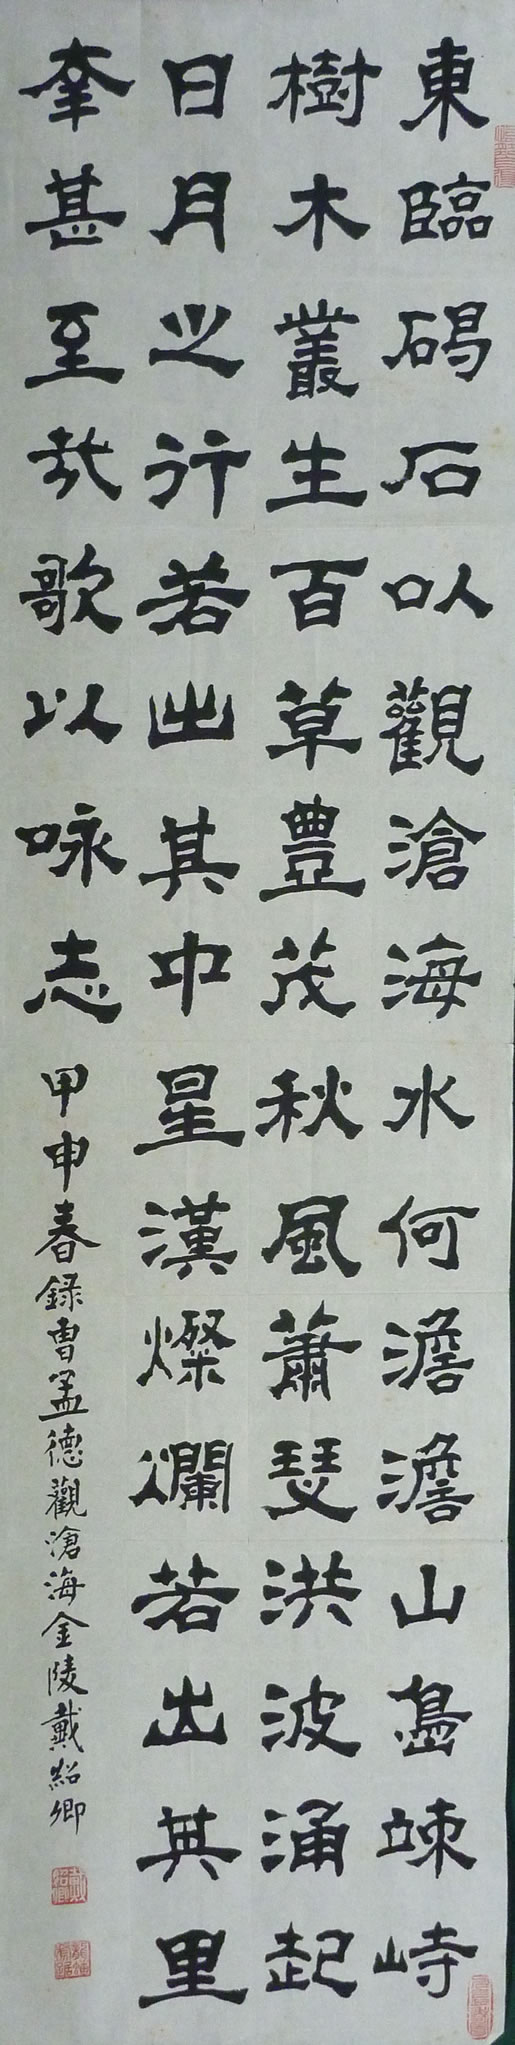 東臨碣石以觀滄海水何澹澹山島竦峙
樹木叢生百草豐茂秋風蕭瑟洪波涌起
日月之行若出其中星漢燦爛若出其里
幸甚至哉歌以咏志
甲申春録曹孟德觀滄海金陵戴紹卿